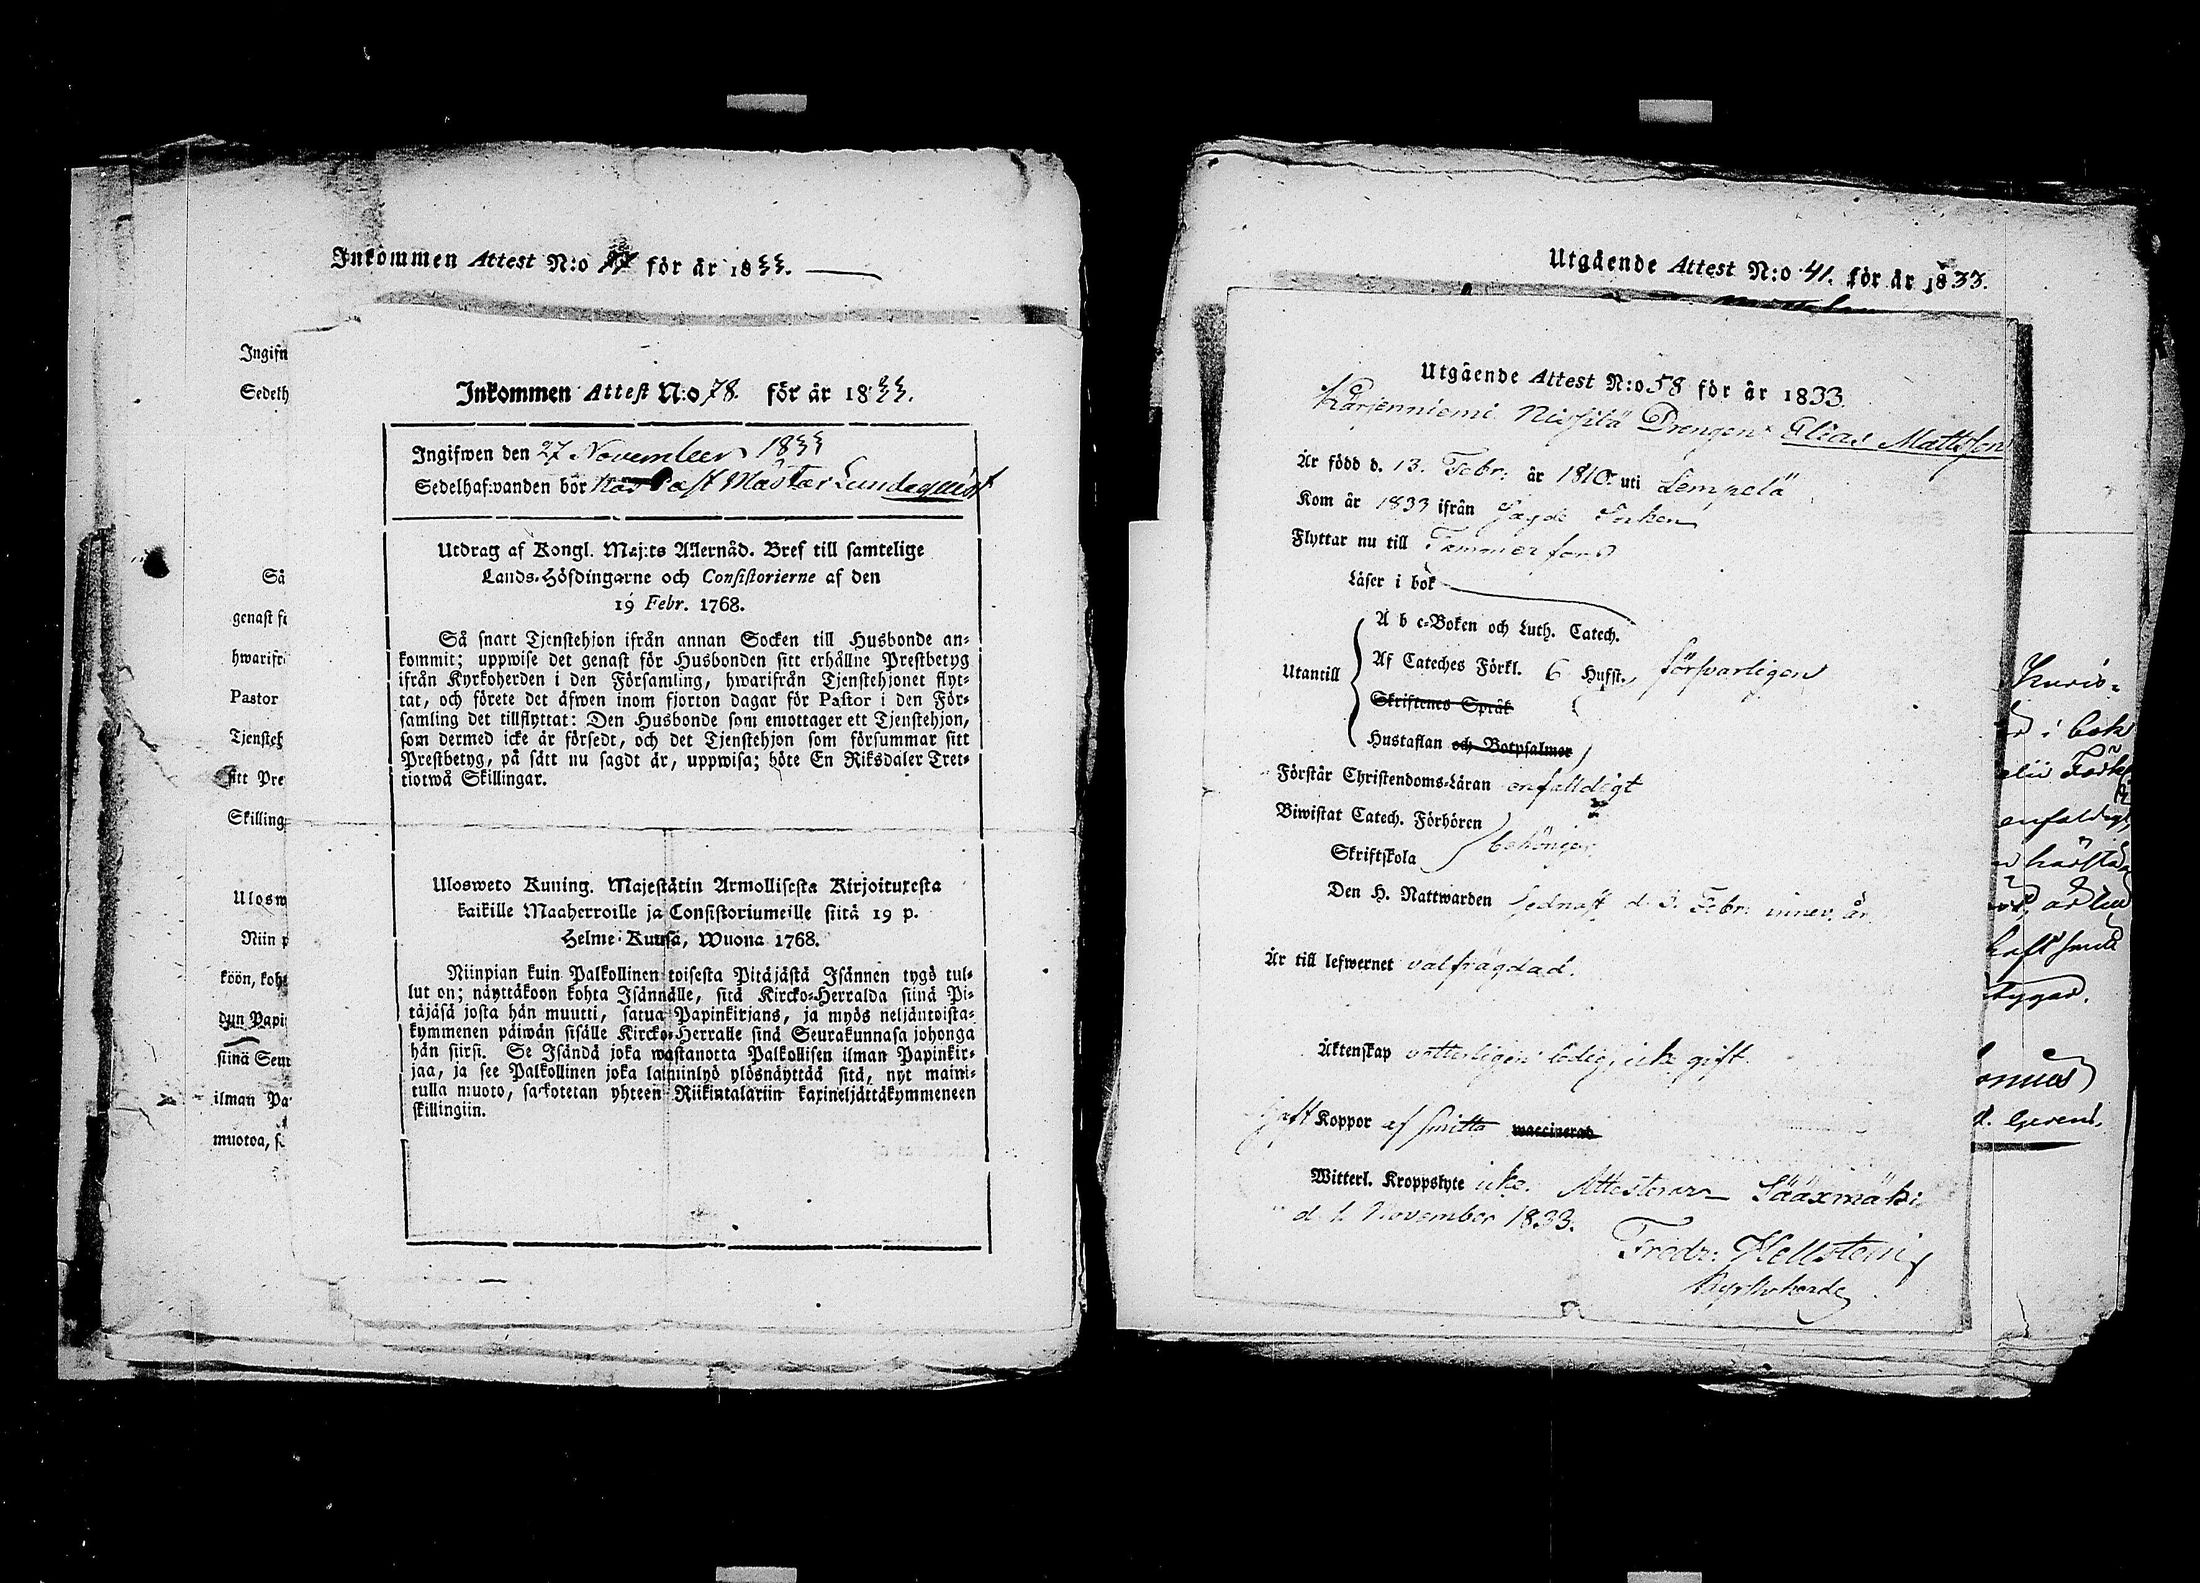 Inkommen Attest N:o för år 1833.
Ingifn
Sedelh
Så
genast fö
hwarifr
Pastor
Tjensteh
sitt Pre
Skilling
Ulosw
Niin p
köön, koht
dyn Papi
siinä Seur
ilman Pa
muotoa, s
Inkommen Attest N:o 78. för år 1833.
Ingifwen den 27 November 1833
Sedelhafwanden bör hos Post Mästar Lundequist
Utdrag af Kongl. Maj:ts Allernåd. Bref till samtelige
Lands-Höfdingarne och Consistorierne af den
19 Febr. 1768.
Så snart Tjenstehjon ifrån annan Socken till Husbonde an-
kommit; uppwise det genast för Husbonden sitt erhållne Prestbetyg
ifrån Kyrkoherden i den Församling, hwarifrån Tjenstehjonet flyt-
tat, och förete det äfwen inom fjorton dagar för Pastor i den För-
samling det tillflyttat: Den Husbonde som emottager ett Tjenstehjon,
som dermed icke är försedt, och det Tjenstehjon som försummar sitt
Prestbetyg, på sätt nu sagdt är, uppwisa; böte En Riksdaler Tret-
tiotwå Skillingar.
Ulosweto Kuning. Majestätin Armollisesta Kirjoituxesta
kaikille Maaherroille ja Consistoriumeille siitä 19 p.
Helme-Kuusa, Wuona 1768.
Niinpian kuin Palkollinen toisesta Pitäjästä Isännen tygö tul-
lut on; näyttäkoon kohta Isännälle, sitä Kircko-Herralda siinä Pi-
täjäsä josta hän muutti, satua Papinkirjans, ja myös neljäntoista-
kymmenen päiwän sisälle Kircko-Herralle sinä Seurakunnasa johonga
hän siirsi. Se Isändä joka wastanotta Palkollisen ilman Papinkir-
jaa, ja see Palkollinen joka laiminlyö ylösnäyttää sitä, nyt maini-
tulla muoto, sackotetan yhteen Riikintalariin kaxineljättäkymmeneen
skillingiin.
Utgående Attest N:o 41. för år 1833.
Utgående Attest N:o 58 för år 1833.
Karjenniemi Nissilä Drengen Elias Mattsson
Är född d. 13. Febr: år 1810. uti Lempelä
Kom år 1833 ifrån sagde Socken
Flyttar nu till Tammerfors
Läser i bok
A b c-Boken och Luth. Catech.
Utantill Af Cateches Förkl. 6 Hufst., försvarligen
Skriftenes Språk
Hustaflan och Botpsalmer
Förstår Christendoms-Läran enfalldigt
Biwistat Catech. Förhören
Skriftskola behörigen
Den H. Nattwarden sednast d. 3. Febr. innev. år
Är till lefwernet välfrägdad.
Äktenskap vetterligen ledig, icke gift.
Haft Koppor af smitta waccinerad
Witterl. Kroppslyte icke. Attesterar Sääxmäki
d. 1. November 1833.
Fredr: Hellstenius
Kyrkoherde
i bok
enfaldigt
haft